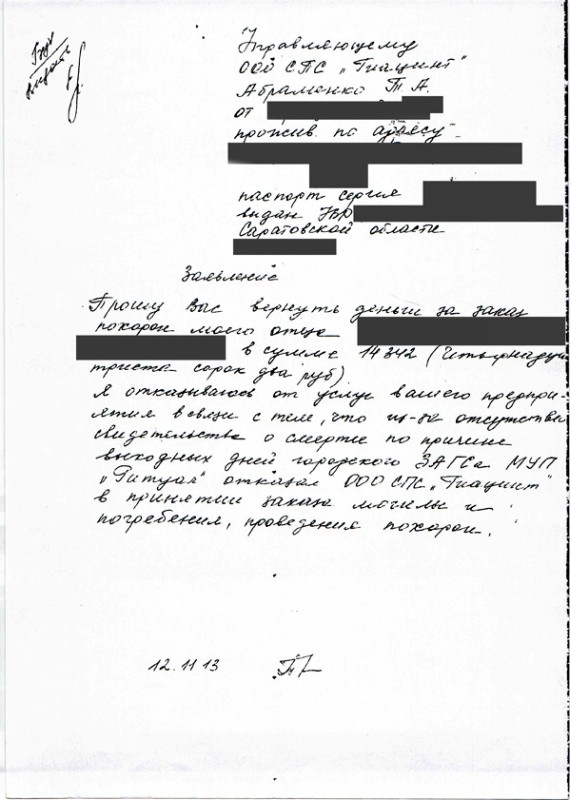 Управляющему
ООО СПС „Гиацинт"
Абраменко Т А.
от
прожив. по адресу
паспорт серия
выдан
Саратовской области
Заявление
Прошу Вас вернуть деньги за заказ
похорон моего отца
в сумме 14 342 (Четырнадцать
триста сорок два руб)
Я отказываюсь от услуг вашего предпри-
ятия в связи с тем, что из-за отсутствия
свидетельства о смерти по причине
выходных дней городского ЗАГСа МУП
„Ритуал" отказал ООО СПС „Гиацинт"
в принятии заказа могилы и
погребения, проведения похорон.
12.11 13